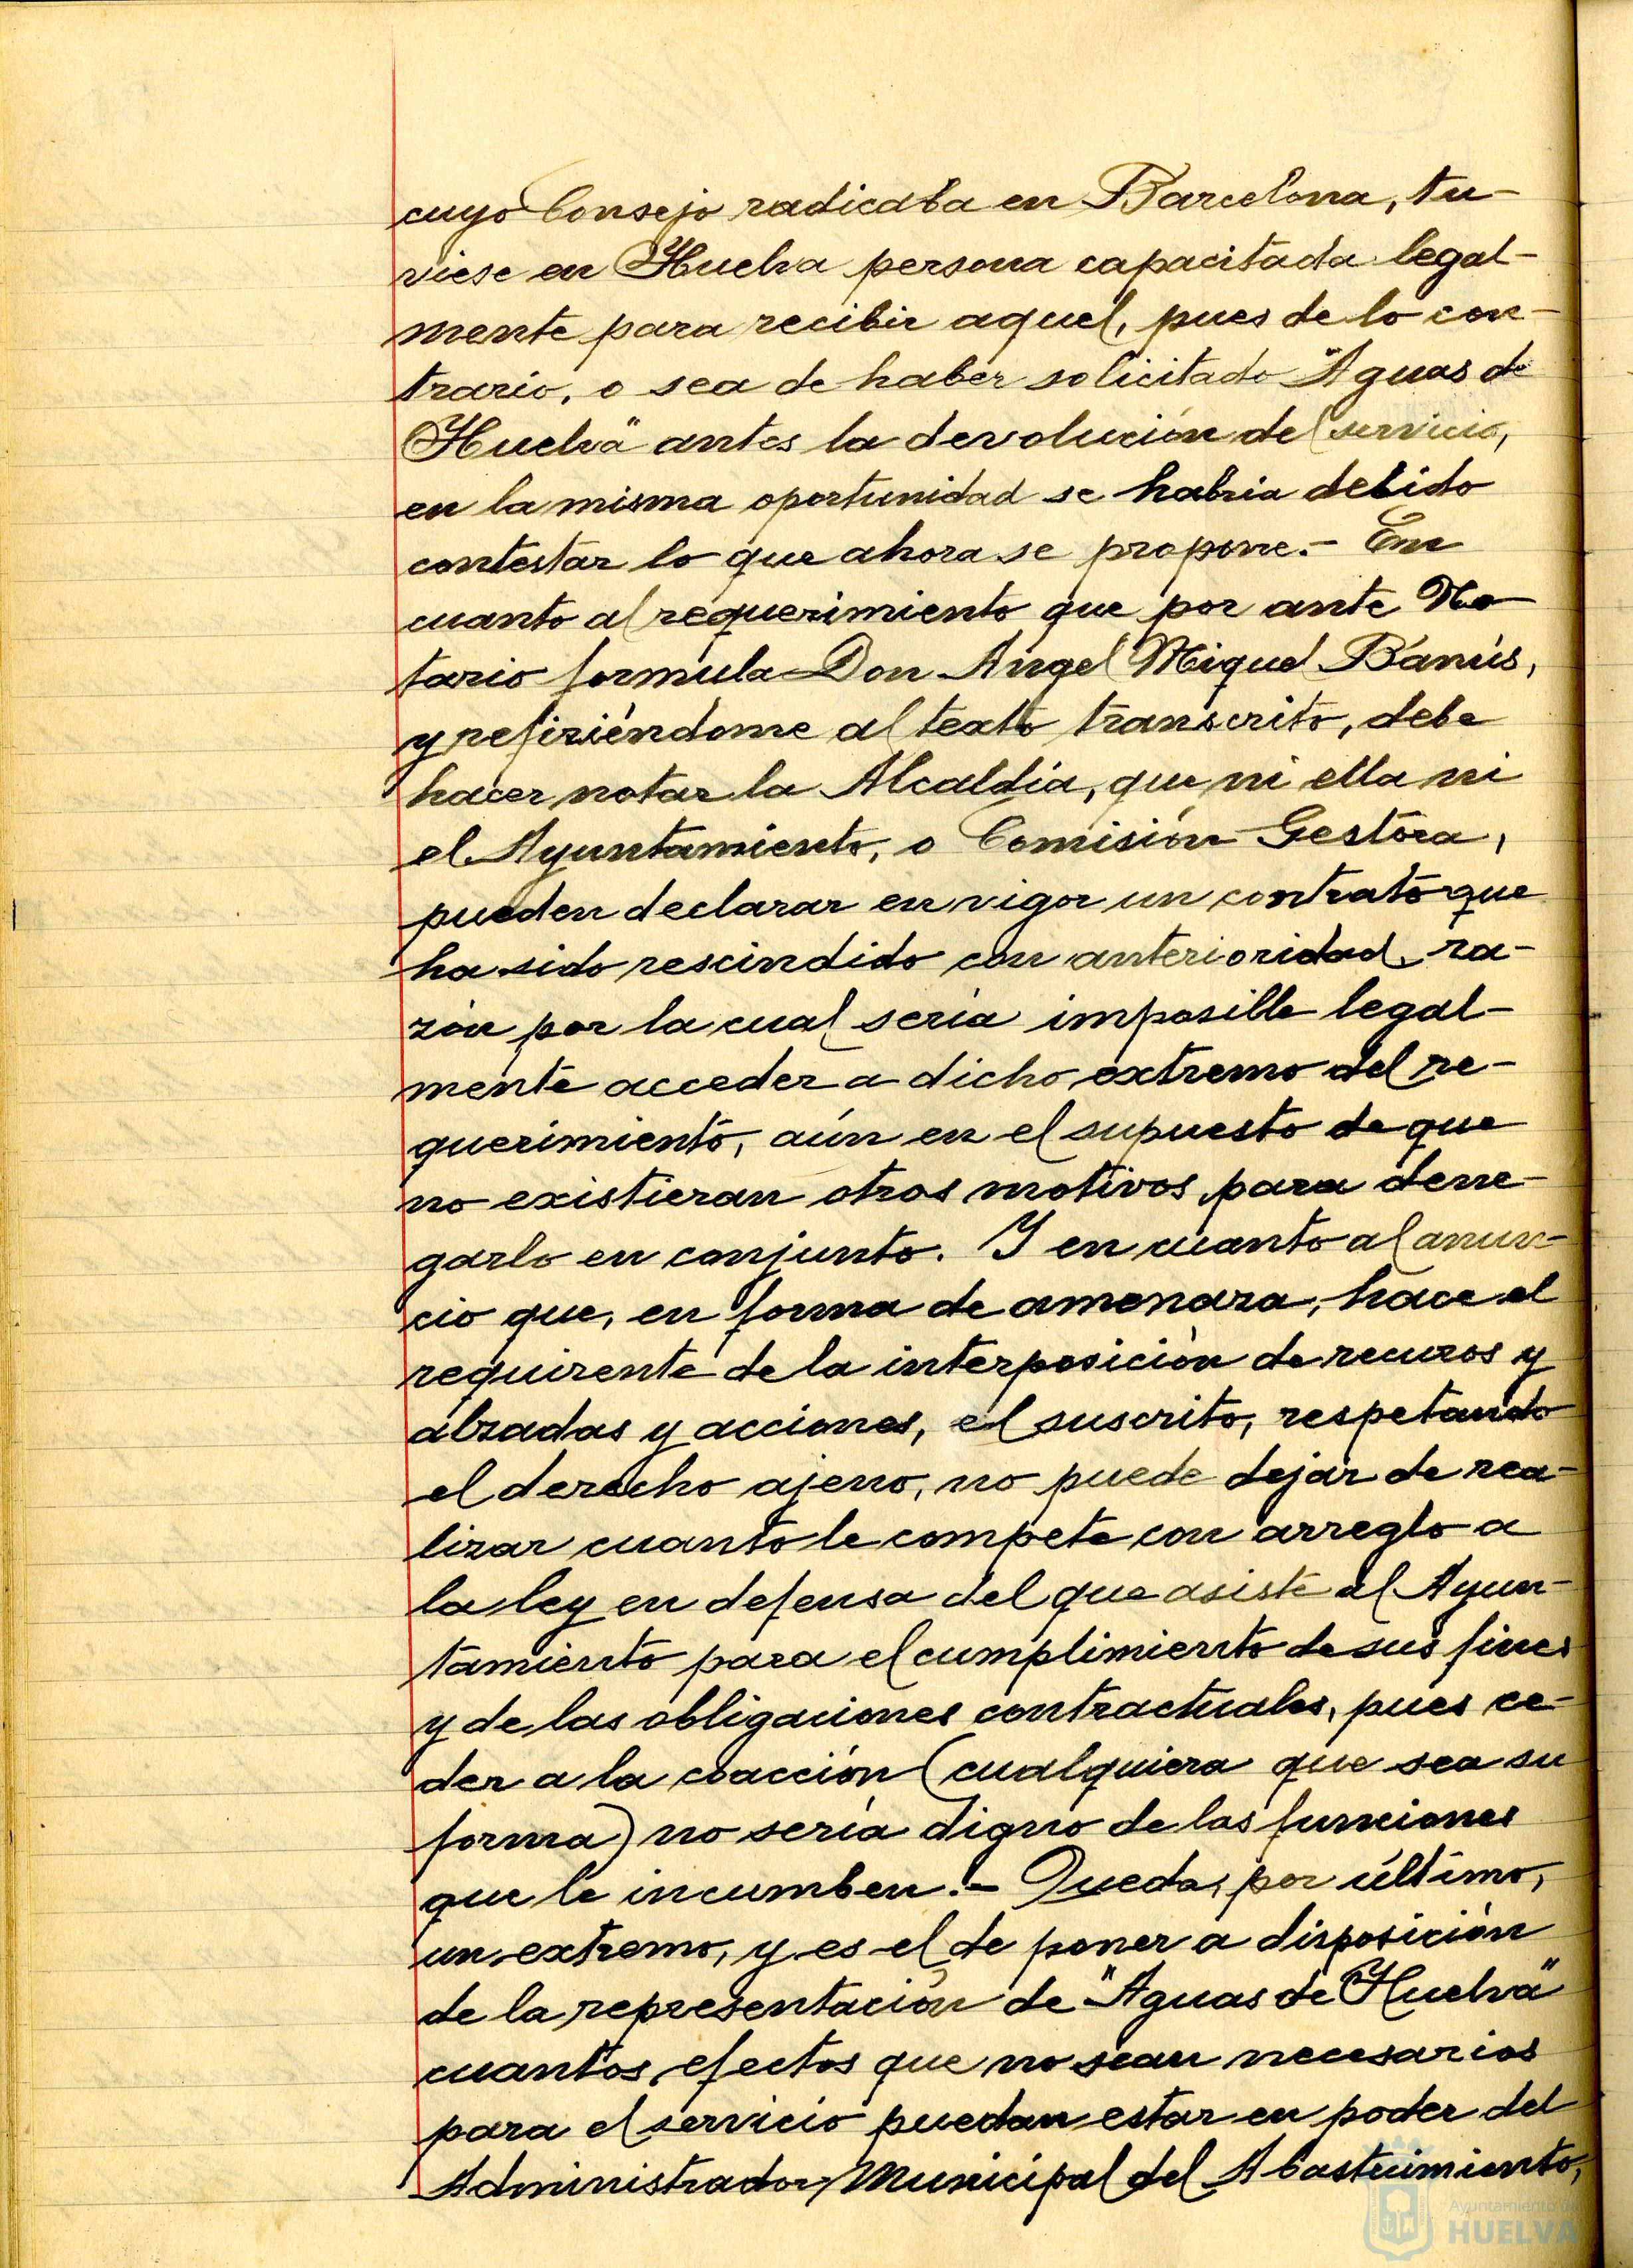 cuyo Consejo radicaba en Barcelona, tu-
viese en Huelva persona capacitada legal-
mente para recibir aquel, pues de lo con-
trario, o sea de haber solicitado "Aguas de
Huelva" antes la devolución del servicio,
en la misma oportunidad se habria debido
contestar lo que ahora se propone.- En
cuanto al requerimiento que por ante No
tario formula Don Angel Miquel Banús,
y refiriéndome al texto transcrito, debe
hacer notar la Alcaldía, que ni ella ni
el Ayuntamiento, o Comisión Gestora,
pueden declarar en vigor un contrato que
ha sido rescindido con anterioridad, ra-
zón por la cual sería imposible legal-
mente acceder a dicho extremo del re-
querimiento, aún en el supuesto de que
no existieran otros motivos para dene-
garlo en conjunto. Y en cuanto al anun-
cio que, en forma de amenaza, hace el
requirente de la interposición de recursos y
alzadas y acciones, el suscrito, respetando
el derecho ajeno, no puede dejar de rea-
lizar cuanto le compete con arreglo a
la ley en defensa del que asiste al Ayun-
tamiento para el cumplimiento de sus fines
y de las obligaciones contractuales, pues ce-
der a la coacción (cualquiera que sea su
forma) no sería digno de las funciones
que le incumben.- Queda, por último,
un extremo, y es el de poner a disposición
de la representación de "Aguas de Huelva"
cuantos efectos que no sean necesarios
para el servicio puedan estar en poder del
Administrador Municipal del Abastecimiento,
Ayuntamiento de
HUELVA